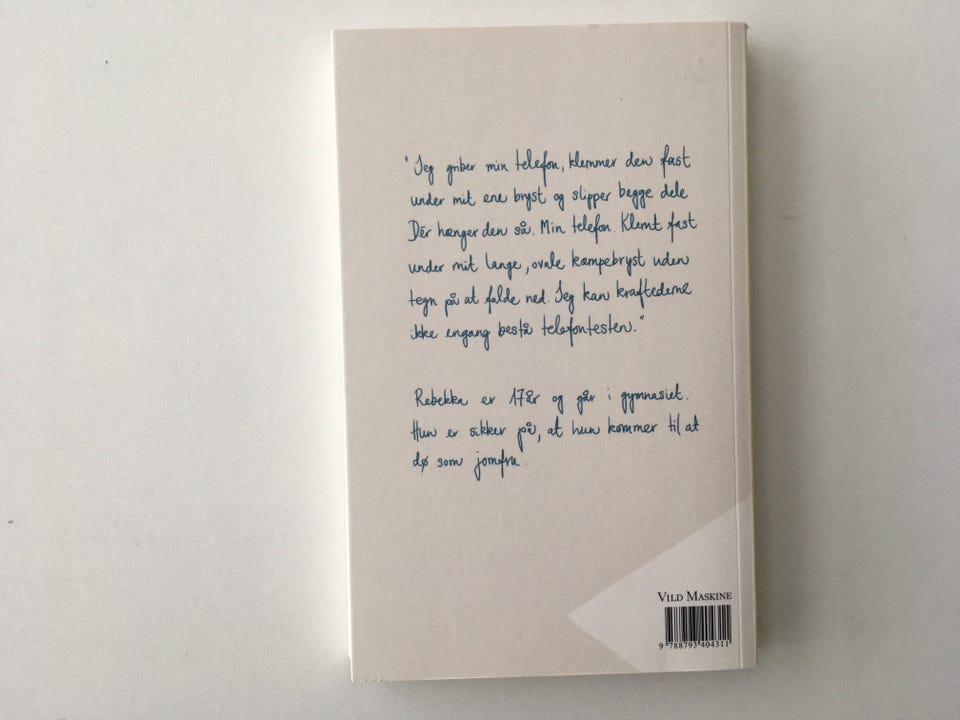 "Jeg griber min telefon, klemmer den fast
under mit ene bryst og slipper begge dele
Dér hænger den så. Min telefon. Klemt fast
under mit lange, ovale kæmpebryst uden
tegn på at falde ned. Jeg kan kraftederne
ikke engang bestå telefontesten."
Rebekka er 17 år og går i gymnasiet.
Hun er sikker på, at hun kommer til at
dø som jomfru.
VILD MASKINE
9 788793 404311